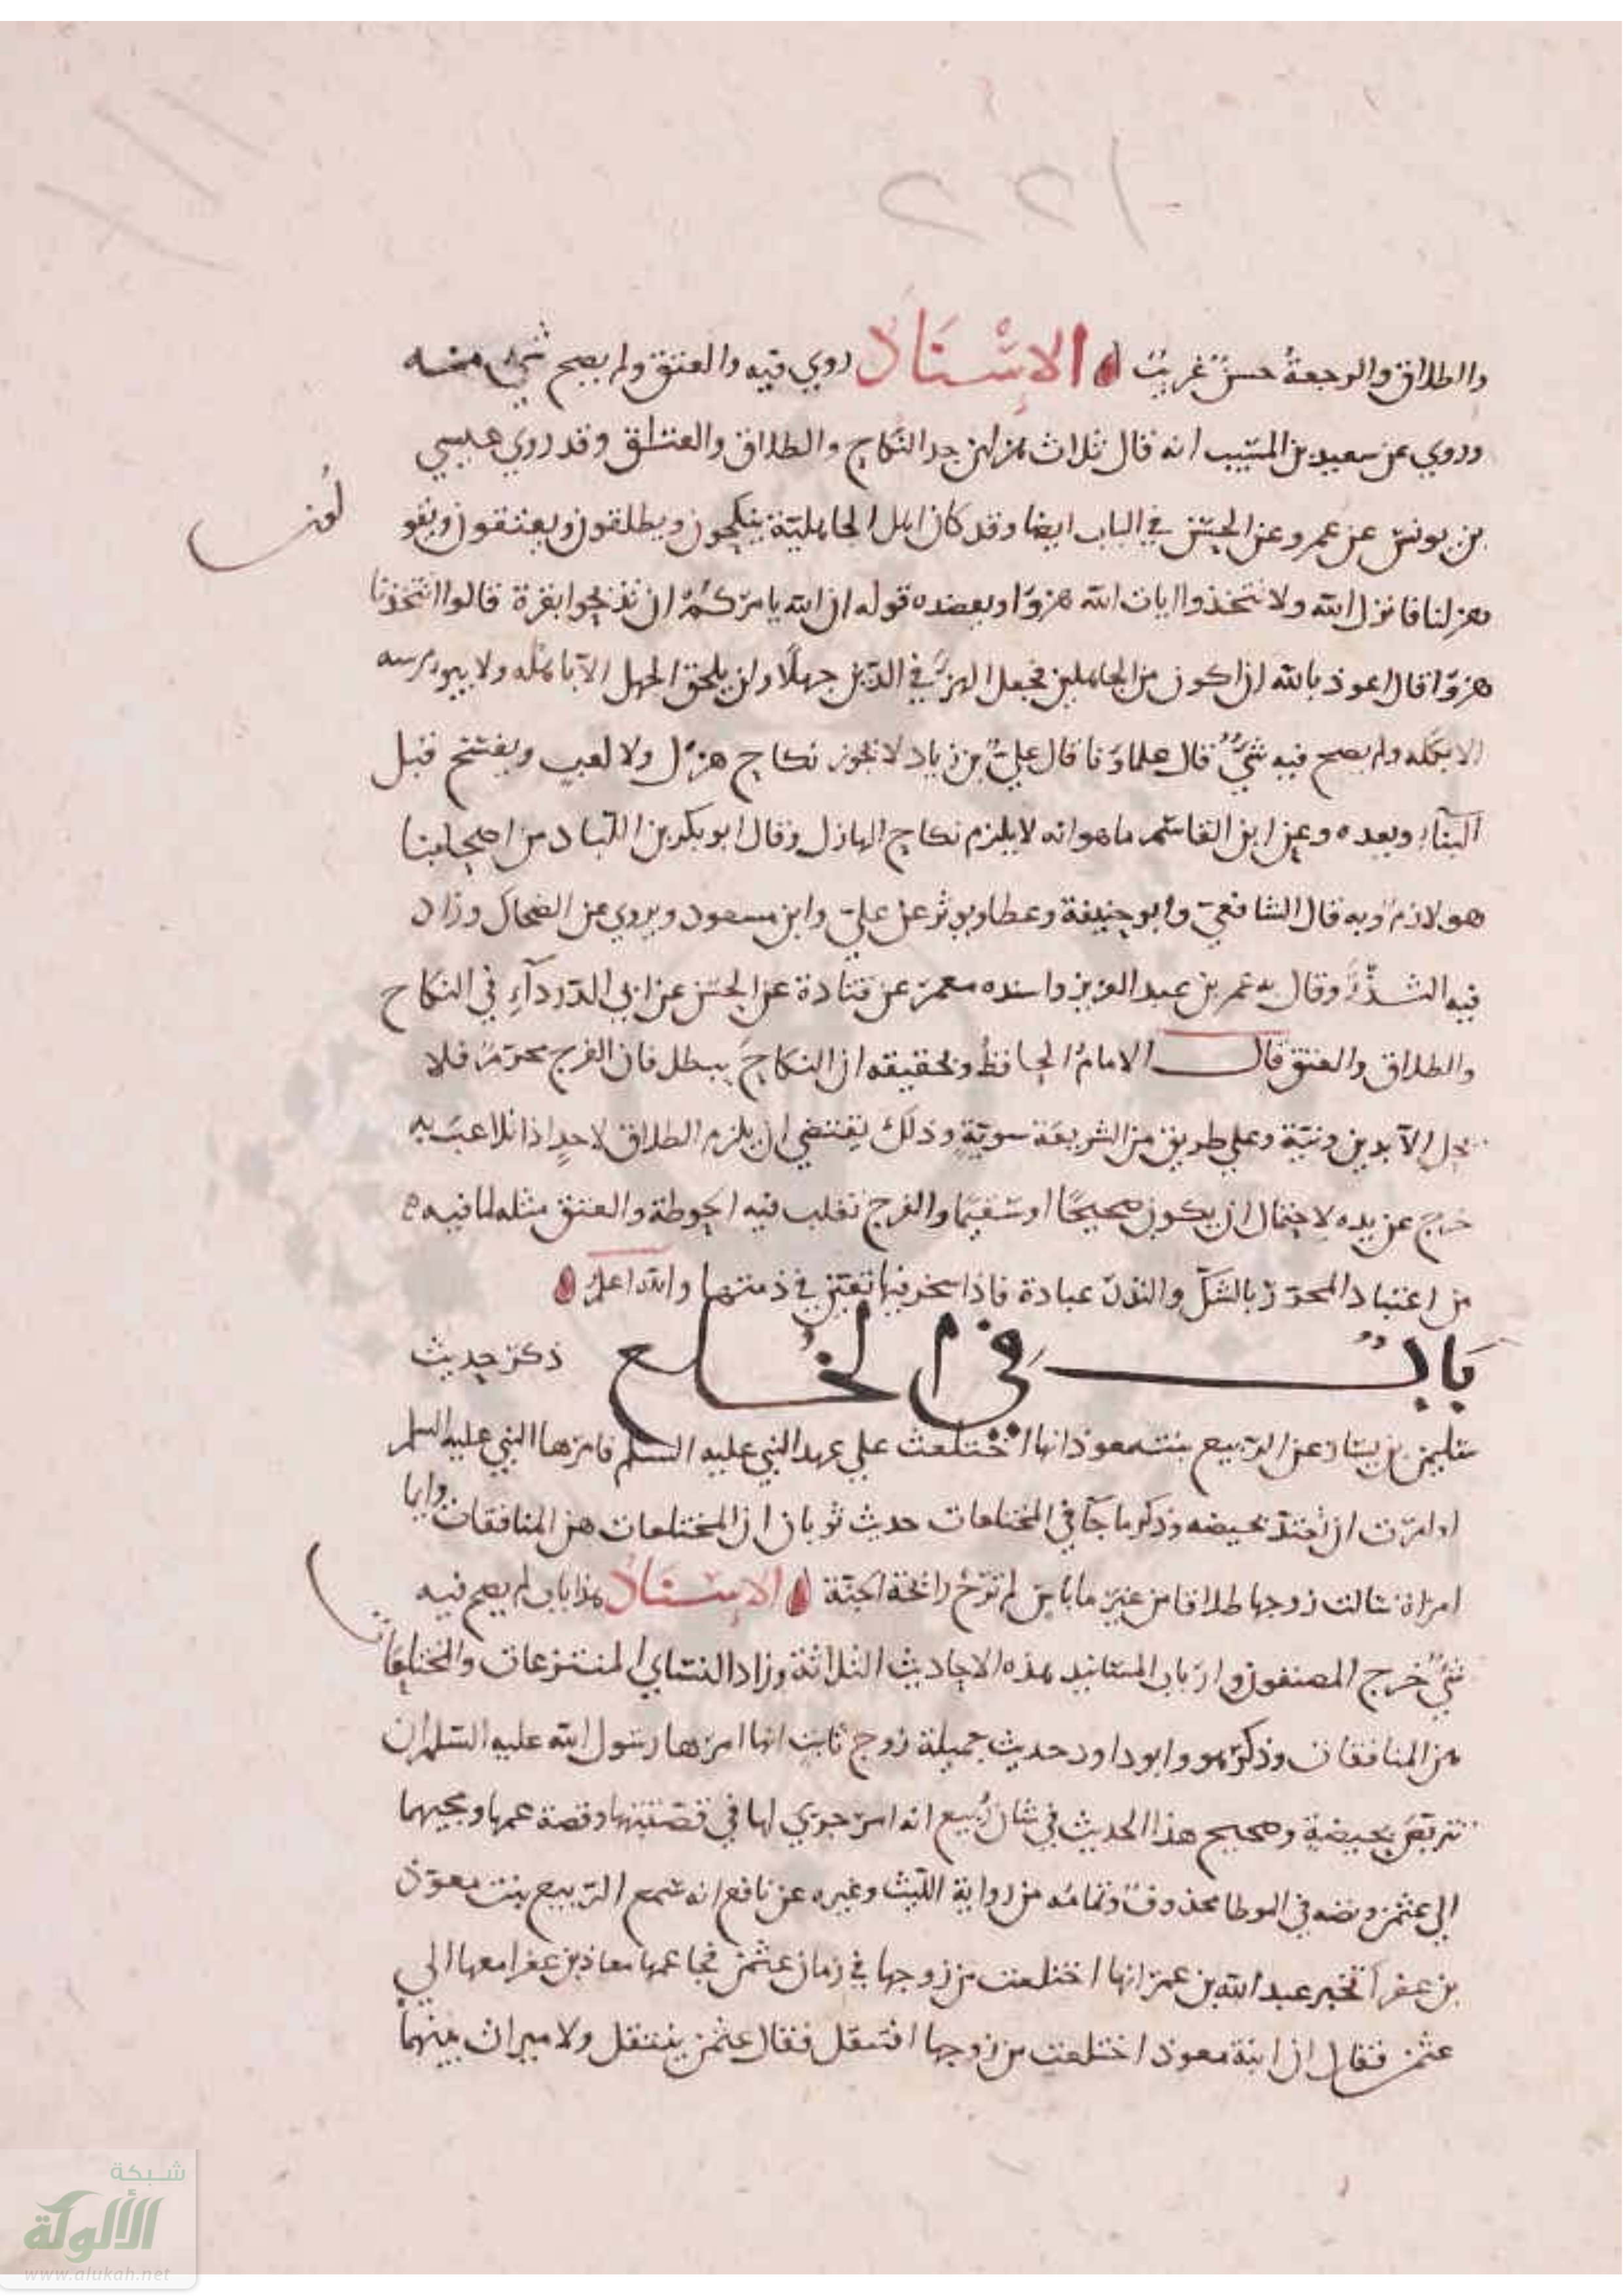 ١٢٢
والطلاق والرجعة حسن غريب الإسناد روي فيه والعتق ولم يصح شيء منه
وروي عن سعيد بن المسيب انه قال ثلاث هزلهن جد النكاح والطلاق والعتاق وقد روي عيسى
بن يونس عن عمرو عن الحسن في الباب ايضا وقد كان اهل الجاهلية ينكحون ويطلقون ويعتقون ويقو
لون
هزلنا فانزل الله ولا تتخذوا ايات الله هزوا ويعضده قوله ان الله يامركم ان تذبحوا بقرة قالوا اتتخذنا
هزوا قال اعوذ بالله ان اكون من الجاهلين فجعل الهزء في الدين جهلا ولن يلحق الجهل الا باهله ولا
الا بمحله ولم يصح فيه شيء قال علماؤنا قال علي بن زياد لا يجوز نكاح هزل ولا لعب ويفسخ قبل
البناء وبعده وعن ابن القاسم ما هو انه لا يلزم نكاح الهازل وقال ابو بكر بن اللباد من اصحابنا
هو لازم وبه قال الشافعي وابو حنيفة وعطا ويوثر عن علي وابن مسعود ويروي عن الضحاك وزاد
فيه النذر وقال به عمر بن عبد العزيز واسنده معمر عن قتادة عن الحسن عن ابي الدرداء في النكاح
والطلاق والعتق قال الامام الحافظ وتحقيقه ان النكاح يبطل فان الفرج محرم فلا
يحل الا بدين ونية وعلي طريق من الشريعة سوية وذلك يقتضي ان يلزم الطلاق لاحد اذا تلاعب به
خرج عن يده لاحتمال ان يكون صحيحا او سقيما والفرج تغلب فيه الحوطة والعتق مثله لما فيه
من اعتبار المحرر بالشك والنذر عبادة فاذا سخر فيها تعين في ذمتها والله اعلم
باب في الخلع ذكر حديث
سليمن بن يسار عن الربيع بنت معوذ انها اختلعت علي عهد النبي عليه السلم فامرها النبي عليه السلم
او امرت ان تعتد بحيضه وذكر ما جآ في المختلعات حديث ثوبان ان المختلعات هن المنافقات وايما
امراة سالت زوجها طلاقا من غير ما باس لم ترح رائحة الجنة الإسناد هذا باب لم يصح فيه
شيء خرج المصنفون وارباب المسانيد هذه الاحاديث الثلاثة وزاد النساي المنتزعات والمختلعات
هن المنافقات وذكر هو وابو داود حديث جميلة زوج ثابت انها امرها رسول الله عليه السلم ان
تتربص بحيضة وصحيح هذا الحديث في شان ربيع انه امر جري لها في قصتها وقصة عمها ومجيهما
الي عثمن ونصه في الموطا محذوف وتمامه من رواية الليث وغيره عن نافع انه سمع الربيع بنت معوذ
بن عفرآ تخبر عبد الله بن عمر انها اختلعت من زوجها في زمان عثمن فجا عمها معاذ بن عفرا معها الي
عثمن فقال ان ابنة معوذ اختلعت من زوجها افتنتقل فقال عثمن ينتقل ولا ميراث بينهما
شبكة
الألوكة
www.alukah.net